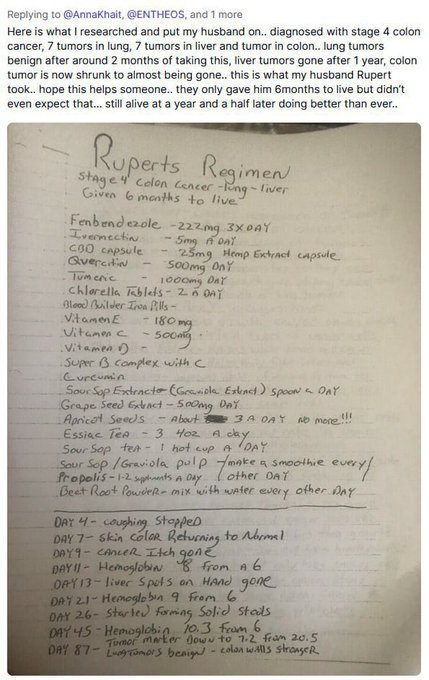 Replying to @AnnaKhait, @ENTHEOS, and 1 more
Here is what I researched and put my husband on.. diagnosed with stage 4 colon
cancer, 7 tumors in lung, 7 tumors in liver and tumor in colon.. lung tumors
benign after around 2 months of taking this, liver tumors gone after 1 year, colon
tumor is now shrunk to almost being gone.. this is what my husband Rupert
took.. hope this helps someone.. they only gave him 6months to live but didn't
even expect that... still alive at a year and a half later doing better than ever..
Ruperts Regimen
Stage 4 colon cancer - lung - liver
Given 6 months to live
Fenbendezole - 222mg 3X DAY
Ivermectin - 5mg A DAY
CBD CAPSULE - 25mg Hemp Extract capsule
Quercitin - 500mg DAY
Tumeric - 1000mg DAY
Chlorella Tablets - 2 A DAY
Blood Builder Iron Pills -
Vitamen E - 180mg
Vitamen C - 500mg
Vitamen D -
Super B complex with C
Curcumin
Sour Sop Extract (Graviola Extract) spoon a DAY
Grape Seed Extract - 500mg DAY
Apricot Seeds - About 3 A DAY NO more!!!
Essiac Tea - 3 4oz A day
Sour Sop tea - 1 hot cup A DAY
Sour Sop / Graviola pulp / make a smoothie every /
Propolis - 1-2 A Day / other DAY
Beet Root Powder - mix with water every other DAY
DAY 4 - coughing stopped
DAY 7 - Skin color Returning to Normal
DAY 9 - CANCER Itch gone
DAY 11 - Hemoglobin 8 from A 6
DAY 13 - liver Spots on HAND gone
DAY 21 - Hemoglobin 9 From 6
DAY 26 - Started forming Solid Stools
DAY 45 - Hemoglobin 10.3 from 6
DAY 87 - Tumor marker Down to 7.2 from 20.5
Lung Tumors benign - colon walls stronger